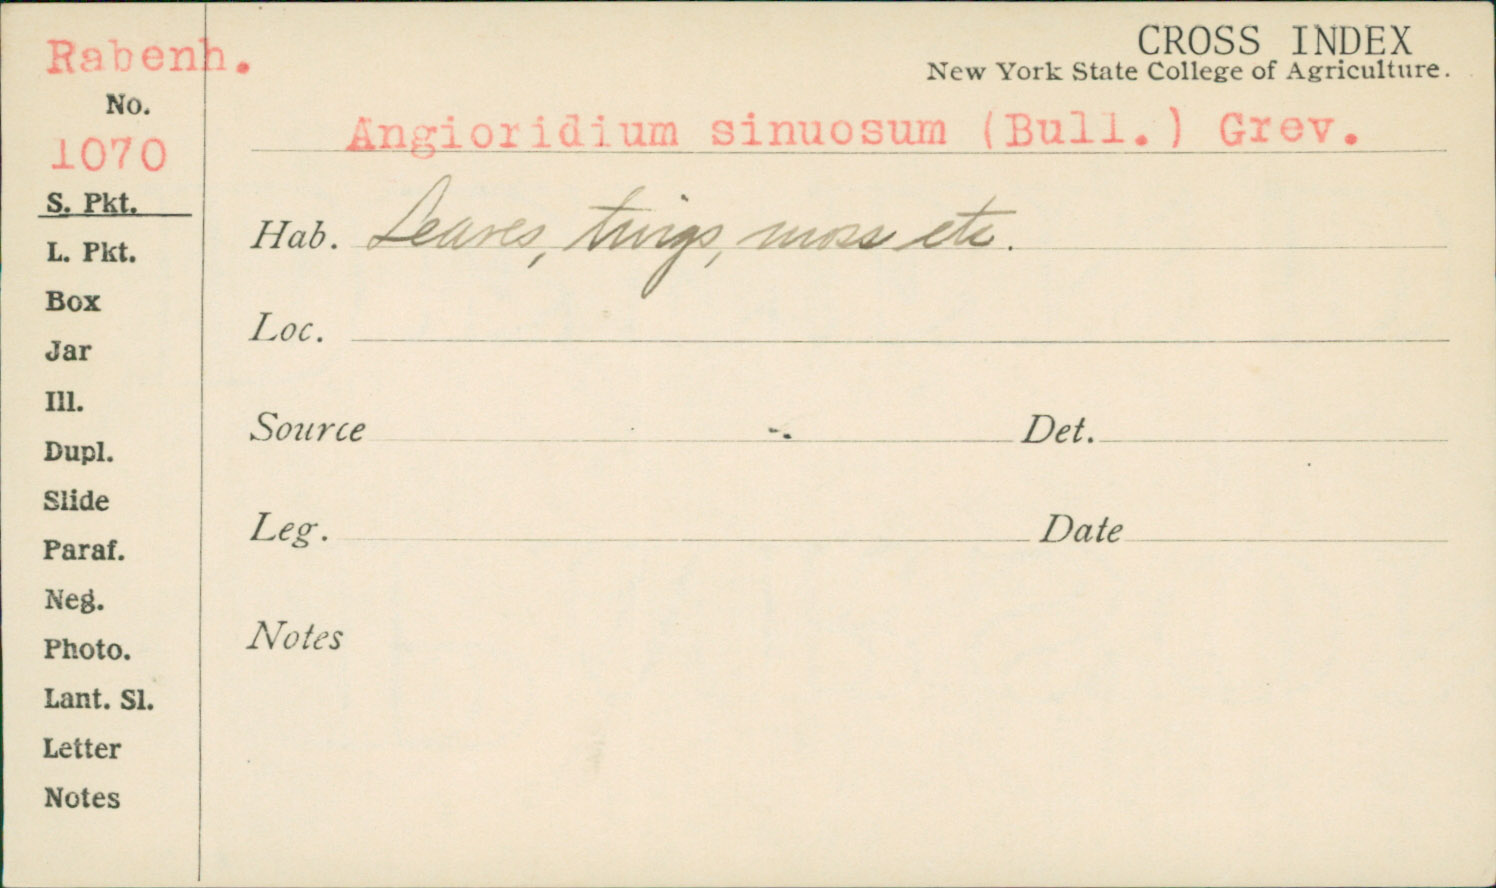 Rabenh.
CROSS INDEX
New York State College of Agriculture.
No.
1070
Angioridium sinuosum (Bull.) Grev.
S. Pkt.
L. Pkt.
Box
Jar
Ill.
Dupl.
Slide
Paraf.
Neg.
Photo.
Lant. Sl.
Letter
Notes
Hab. Leaves, twigs, moss etc.
Loc.
Source Det.
Leg. Date
Notes